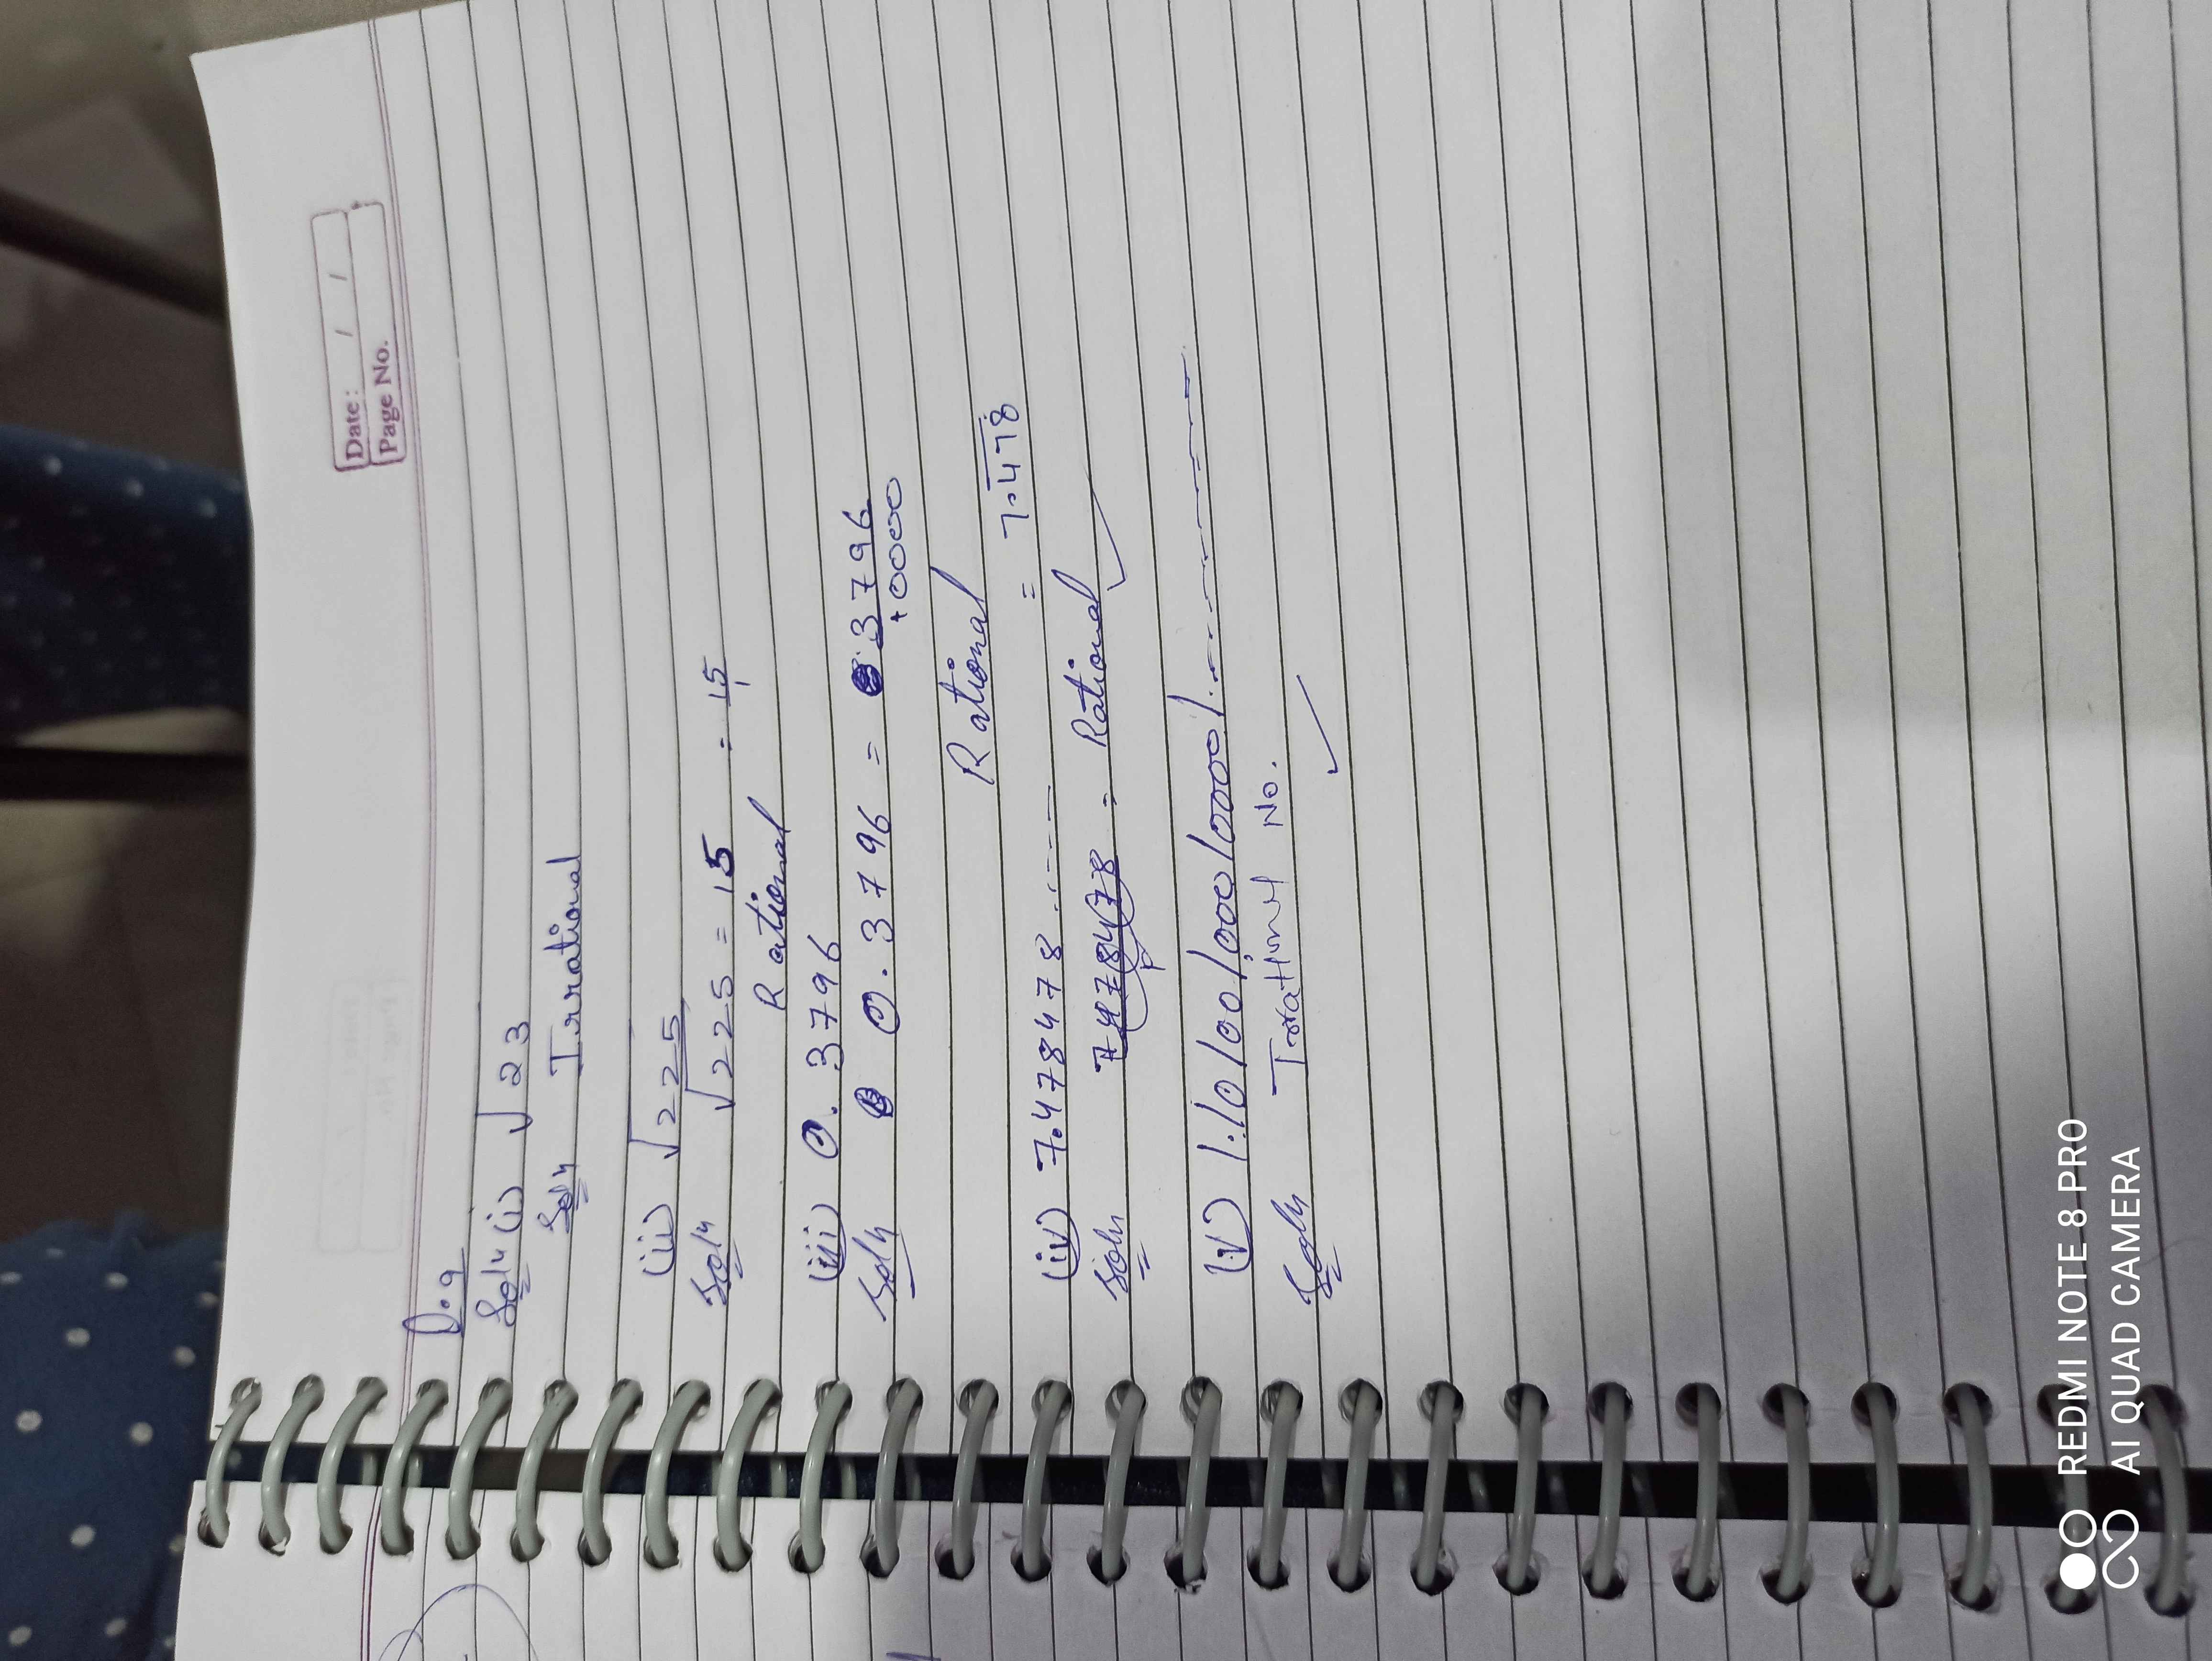 Date: / /
Page No.
Q.9
Soln (i) √23
Soln Irrational
(ii) √225
Soln √225 = 15 = 15/1
Rational
(iii) 0.3796
Soln 0.3796 = 3796
+0000
Rational
(iv) 7.478478.------ = 7.478
Soln 7478478 = Rational
(v) 1.101001000100001.------------
Soln Irrational No.
REDMI NOTE 8 PRO
AI QUAD CAMERA